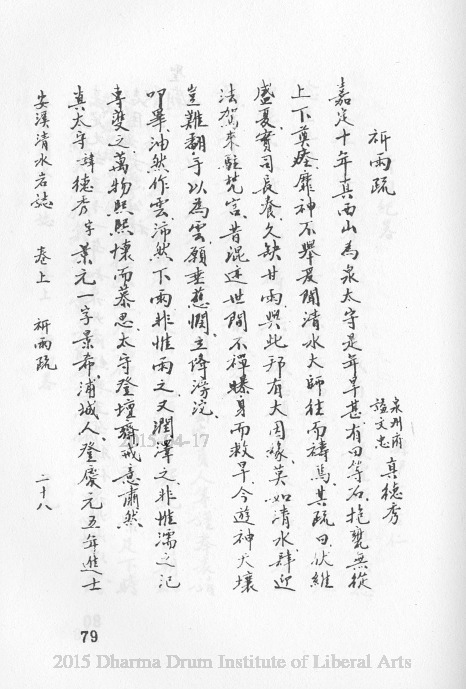 祈雨疏
泉州府 真德秀
諡文忠
嘉定十年真西山為泉太守是年旱甚有田等石抱甕無從
上下奠瘞靡神不舉爰聞清水大師往而禱焉其疏曰伏維
盛夏實司長養久缺甘雨與此邦有大因緣莫如清水肆迎
法駕來駐梵宮昔混迹世間不禪曝身而救旱今遊神天壤
豈難翻手以為雲願垂慈憫立降滂沱
叩畢油然作雲沛然下雨非惟雨之又潤澤之非惟濡之氾
專濩之萬物熙熙懷而慕思太守登壇齋戒意肅然
真太守諱德秀字景元一字景希浦城人登慶元五年進士
安溪清水岩誌 卷上 祈雨疏 二十八
79
2015 Dharma Drum Institute of Liberal Arts